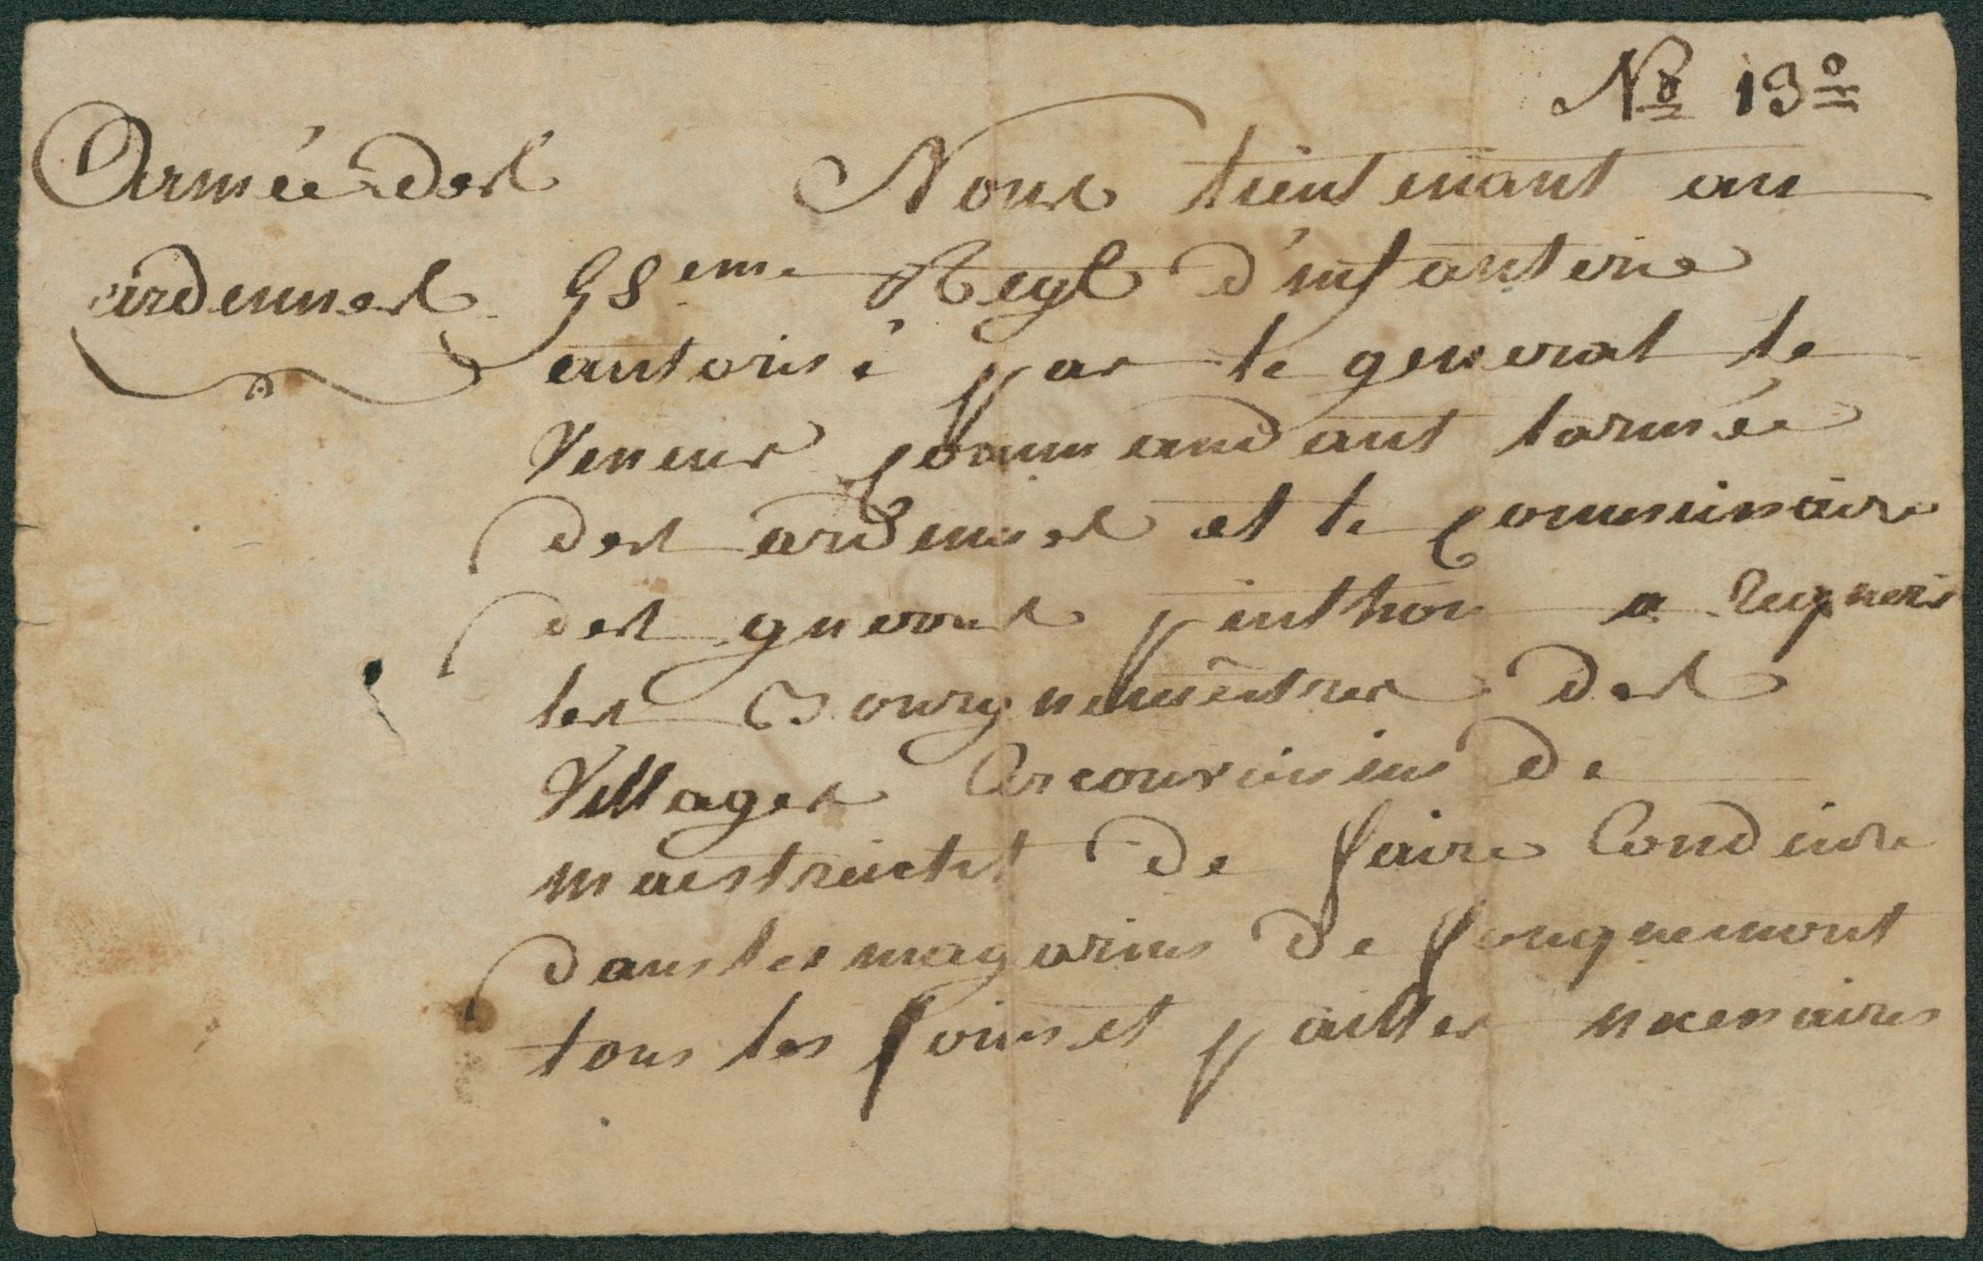 No 13o
Armée des
ardennes
Nous lieutenant au
58eme Regt d'infanterie
autorisé par le general le
Veneur commandant larmée
des ardennes et le commissaire
des guerres pinthon a requerir
les Bourguemêstres des
Villages circonvoisins de
maestricht de faire Conduire
dans les magasins de fouquemont
tous les foins et pailles necessaires